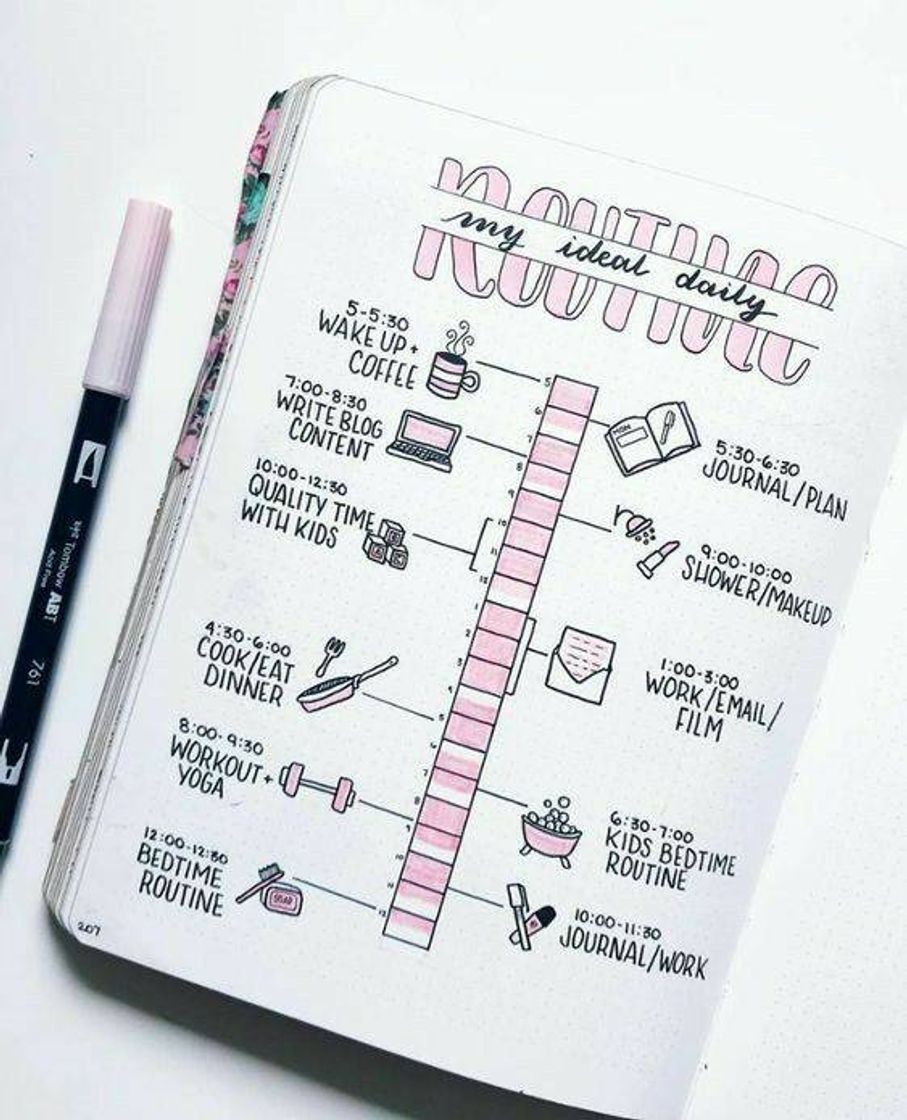 my ideal daily
ROUTINE
5-5:30
WAKE UP +
COFFEE
5
6
7
8
9
10
11
12
1
2
3
4
5
6
7
8
9
10
11
12
MON
5:30-6:30
JOURNAL/PLAN
7:00-8:30
WRITE BLOG
CONTENT
9:00-10:00
SHOWER/MAKEUP
10:00-12:30
QUALITY TIME
WITH KIDS
1:00-3:00
WORK/EMAIL/
FILM
4:30-6:00
COOK/EAT
DINNER
6:30-7:00
KIDS BEDTIME
ROUTINE
8:00-9:30
WORKOUT +
YOGA
10:00-11:30
JOURNAL/WORK
12:00-12:30
BEDTIME
ROUTINE
SOAP
207
Tombow ABT
761